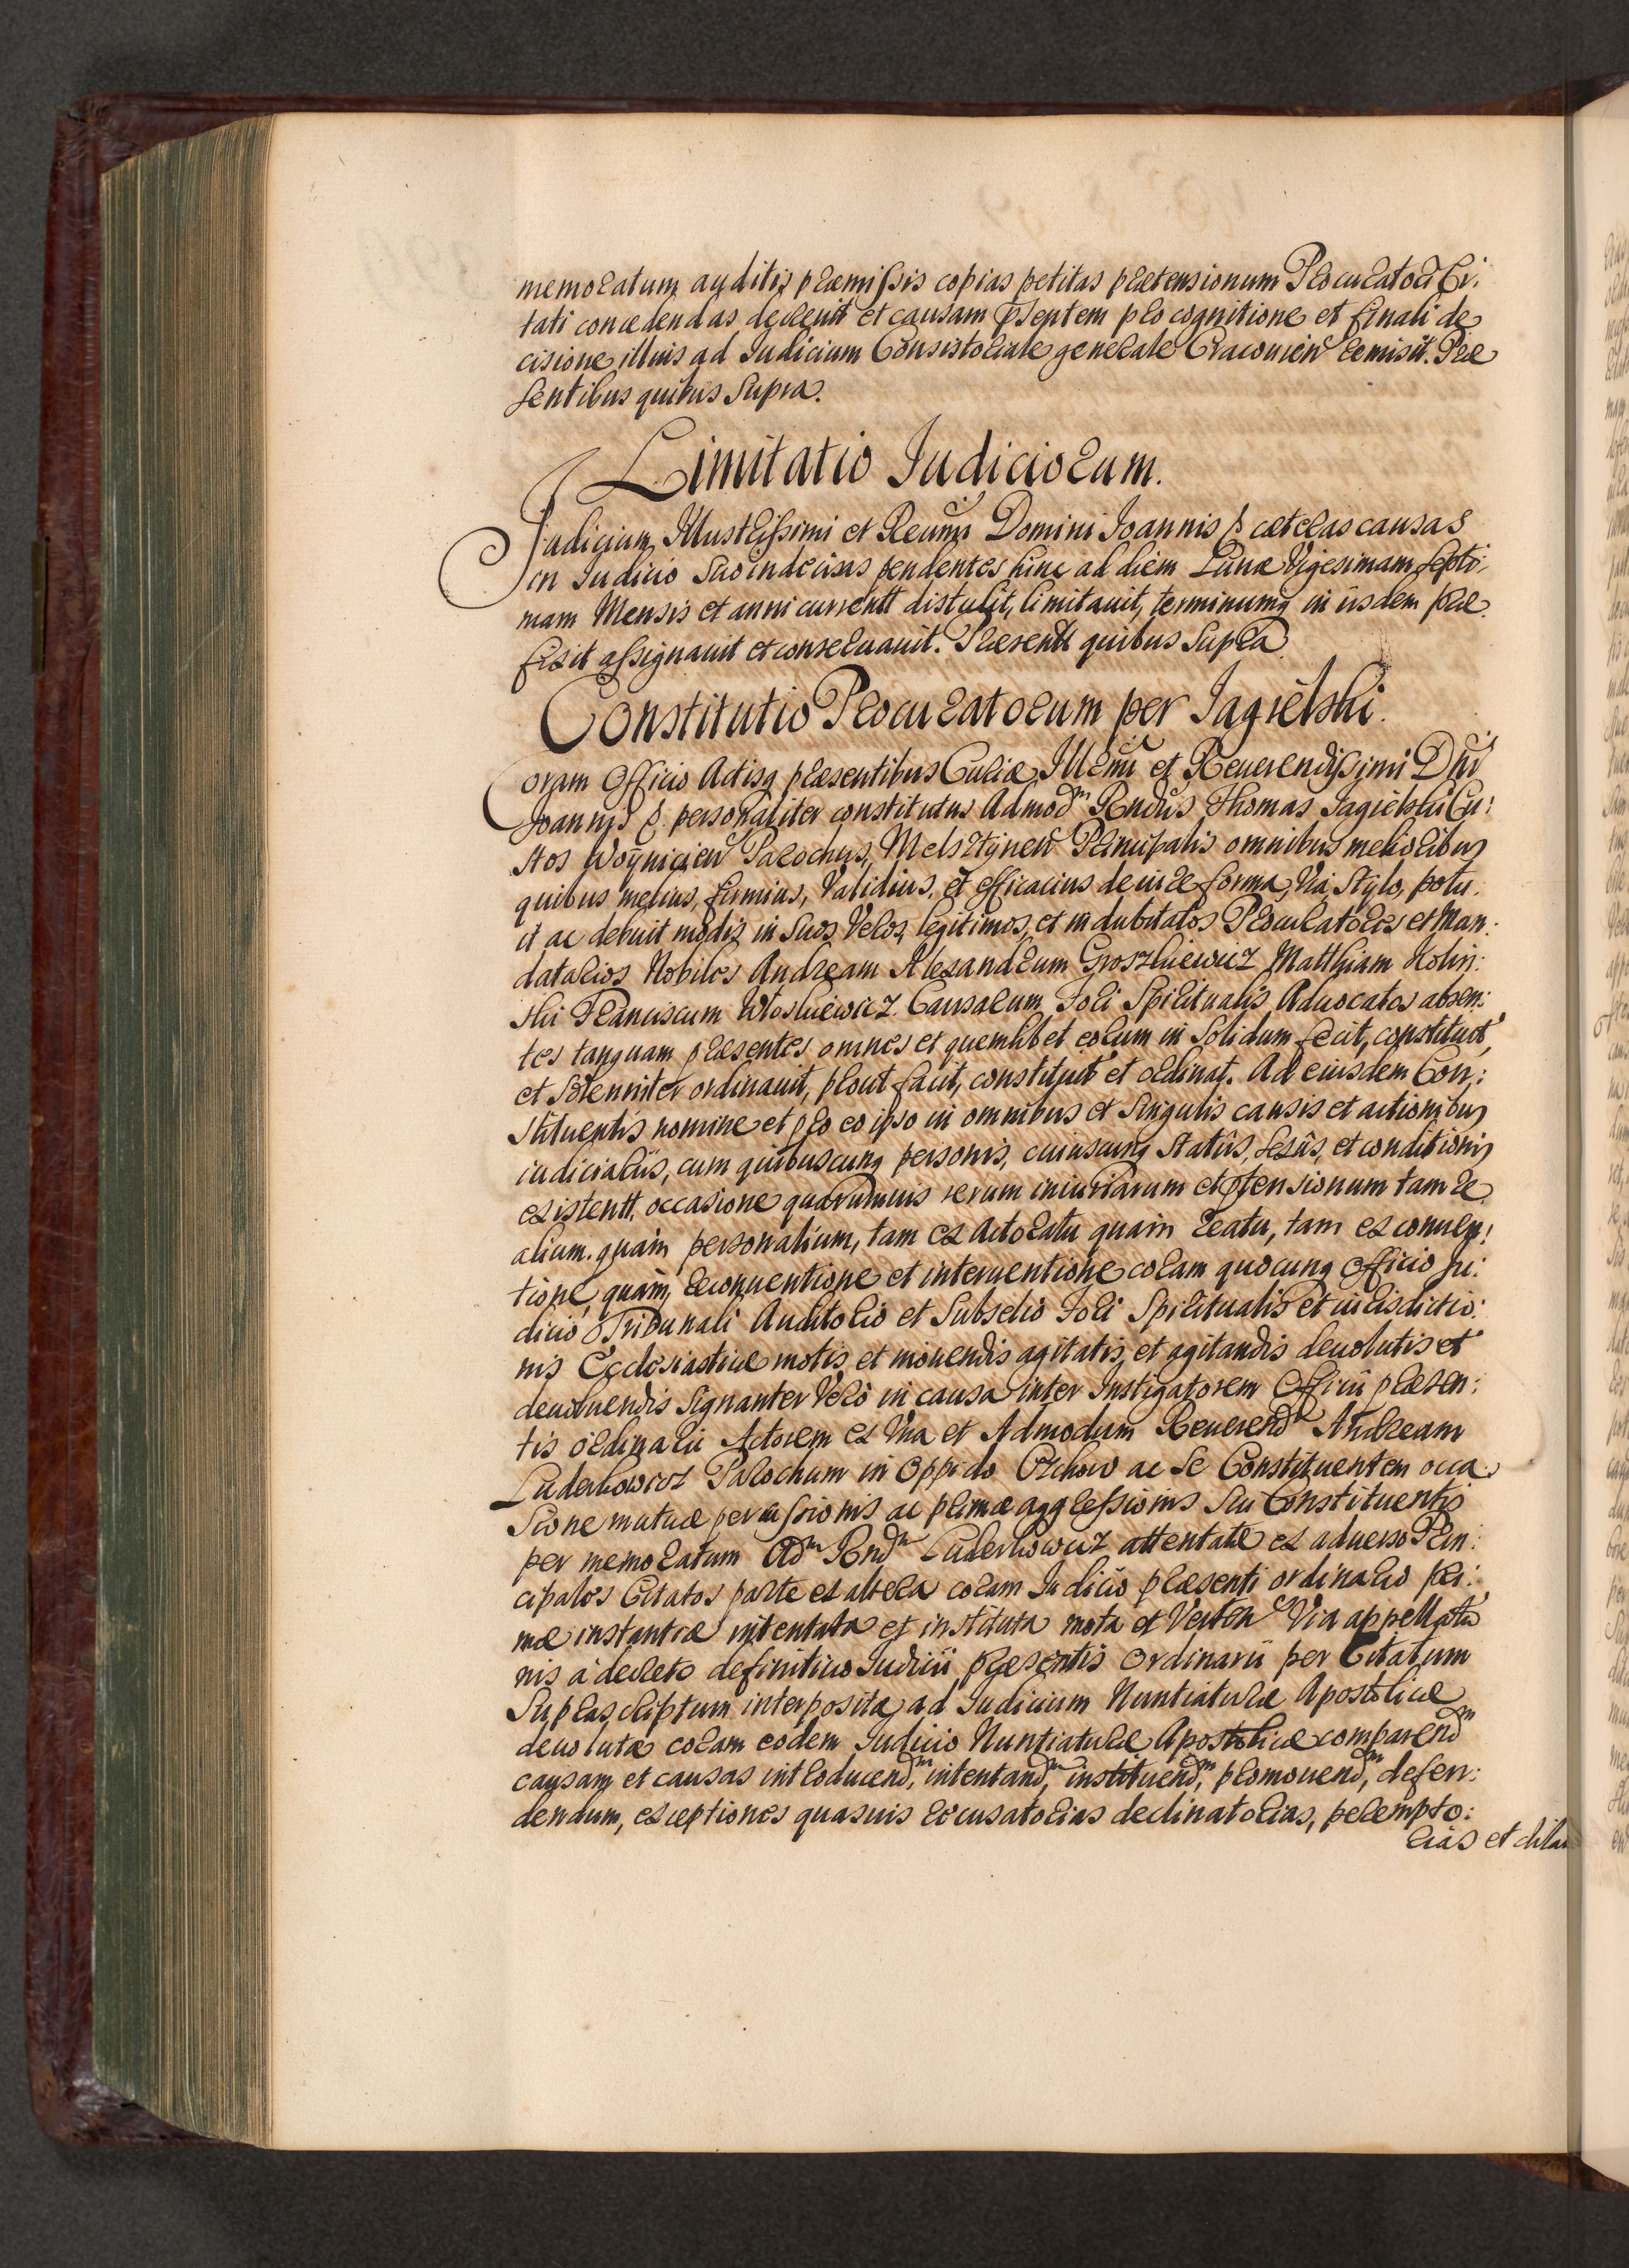 memoratum auditis præmissis copias petitas prætensionum Procuratori Ci:
tati concedendas decreuit et causam pñtem pro cognitione et finali de
cisione illius ad Iudicium Consistoriale generale Cracouien remisit. Præ
sentibus quibus supra.
Limitatio Iudiciorum.
Iudicium Illustrissimi et Reumi Domini Ioannis & cæteras causas
in Iudicio suo indecisas pendentes hinc ad diem Lunæ Vigesimam septi:
mam Mensis et anni currentt distulit, limitauit, terminumq in iisdem præ
fixit assignauit et conseruauit. Præsentt quibus supra
Constitutio Procuratorum per Iagielski.
Coram Officio Actisq præsentibus Curiæ Illrmi et Reuerendissimi Dñi
Joannis &. personaliter constitutus Admodm Rndus Thomas Iagielski Cu:
stos Woynicien Parochus, Melsztynen Principalis omnibus melioribus
quibus melius, firmius, Validius, et efficacius de iure forma, Via, Stylo, potu:
it ac debuit modis in suos Veros, legitimos, et indubitatos Procuratores et Man:
datarios Nobiles Andream Alexandrum Groszkiewicz Matthiam Kolin:
ski Franciscum Wloskiewicz Causarum Fori Spiritualis Aduocatos absen:
tes tanquam præsentes omnes et quemlibet eorum in solidum fecit, constituit,
et solenniter ordinauit, prout facit, constituit et ordinat. Ad eiusdem Con:
stituentis nomine et pro eo ipso in omnibus et singulis causis et actionibus
iudiciariis, cum quibuscunq personis, cuiuscunq statûs, sexûs, et conditionis
existentt. occasione quarumuis rerum iniuriarum et offensionum tam re
alium. quam personalium, tam ex Actoratu quam reatu, tam ex conuen:
tione, quam, reconuentione et interuentione coram quocunq Officio Iu:
dicio Tribunali Auditorio et Subselio Fori Spiritualis et iurisdictio:
nis Ecclesiasticæ motis et mouendis agitatis, et agitandis deuolutis et
deuoluendis signanter Vero in causa inter Instigatorem Officii præsen:
tis ordinarii Actorem ex Vna et Admodum Reuerendm Andream
Luderkowicz Parochum in Oppido Czchow ac se Constituentem occa
sione mutuæ percussionis ac primæ aggressionis sui Constituentis
per memoratum Adm Rndm Luderkowicz attentatæ ex aduerso Prin:
cipales Citatos parte ex altera coram Iudicio præsenti ordinario pri:
mæ instantiæ intentata et instituta mota et Verten Via appellatio
nis à decreto definitiuo Iudicii præsentis Ordinarii per Citatum
supra scriptum interposita, ad Iudicium Nuntiaturæ Apostolicæ
deuoluta coram eodem Iudicio Nuntiaturæ Apostolicæ comparendm
causam et causas introducendm, intentandm, instituendm, promouendm, defen:
dendum, exceptiones quasuis recusatorias declinatorias, perempto:
rias et dila